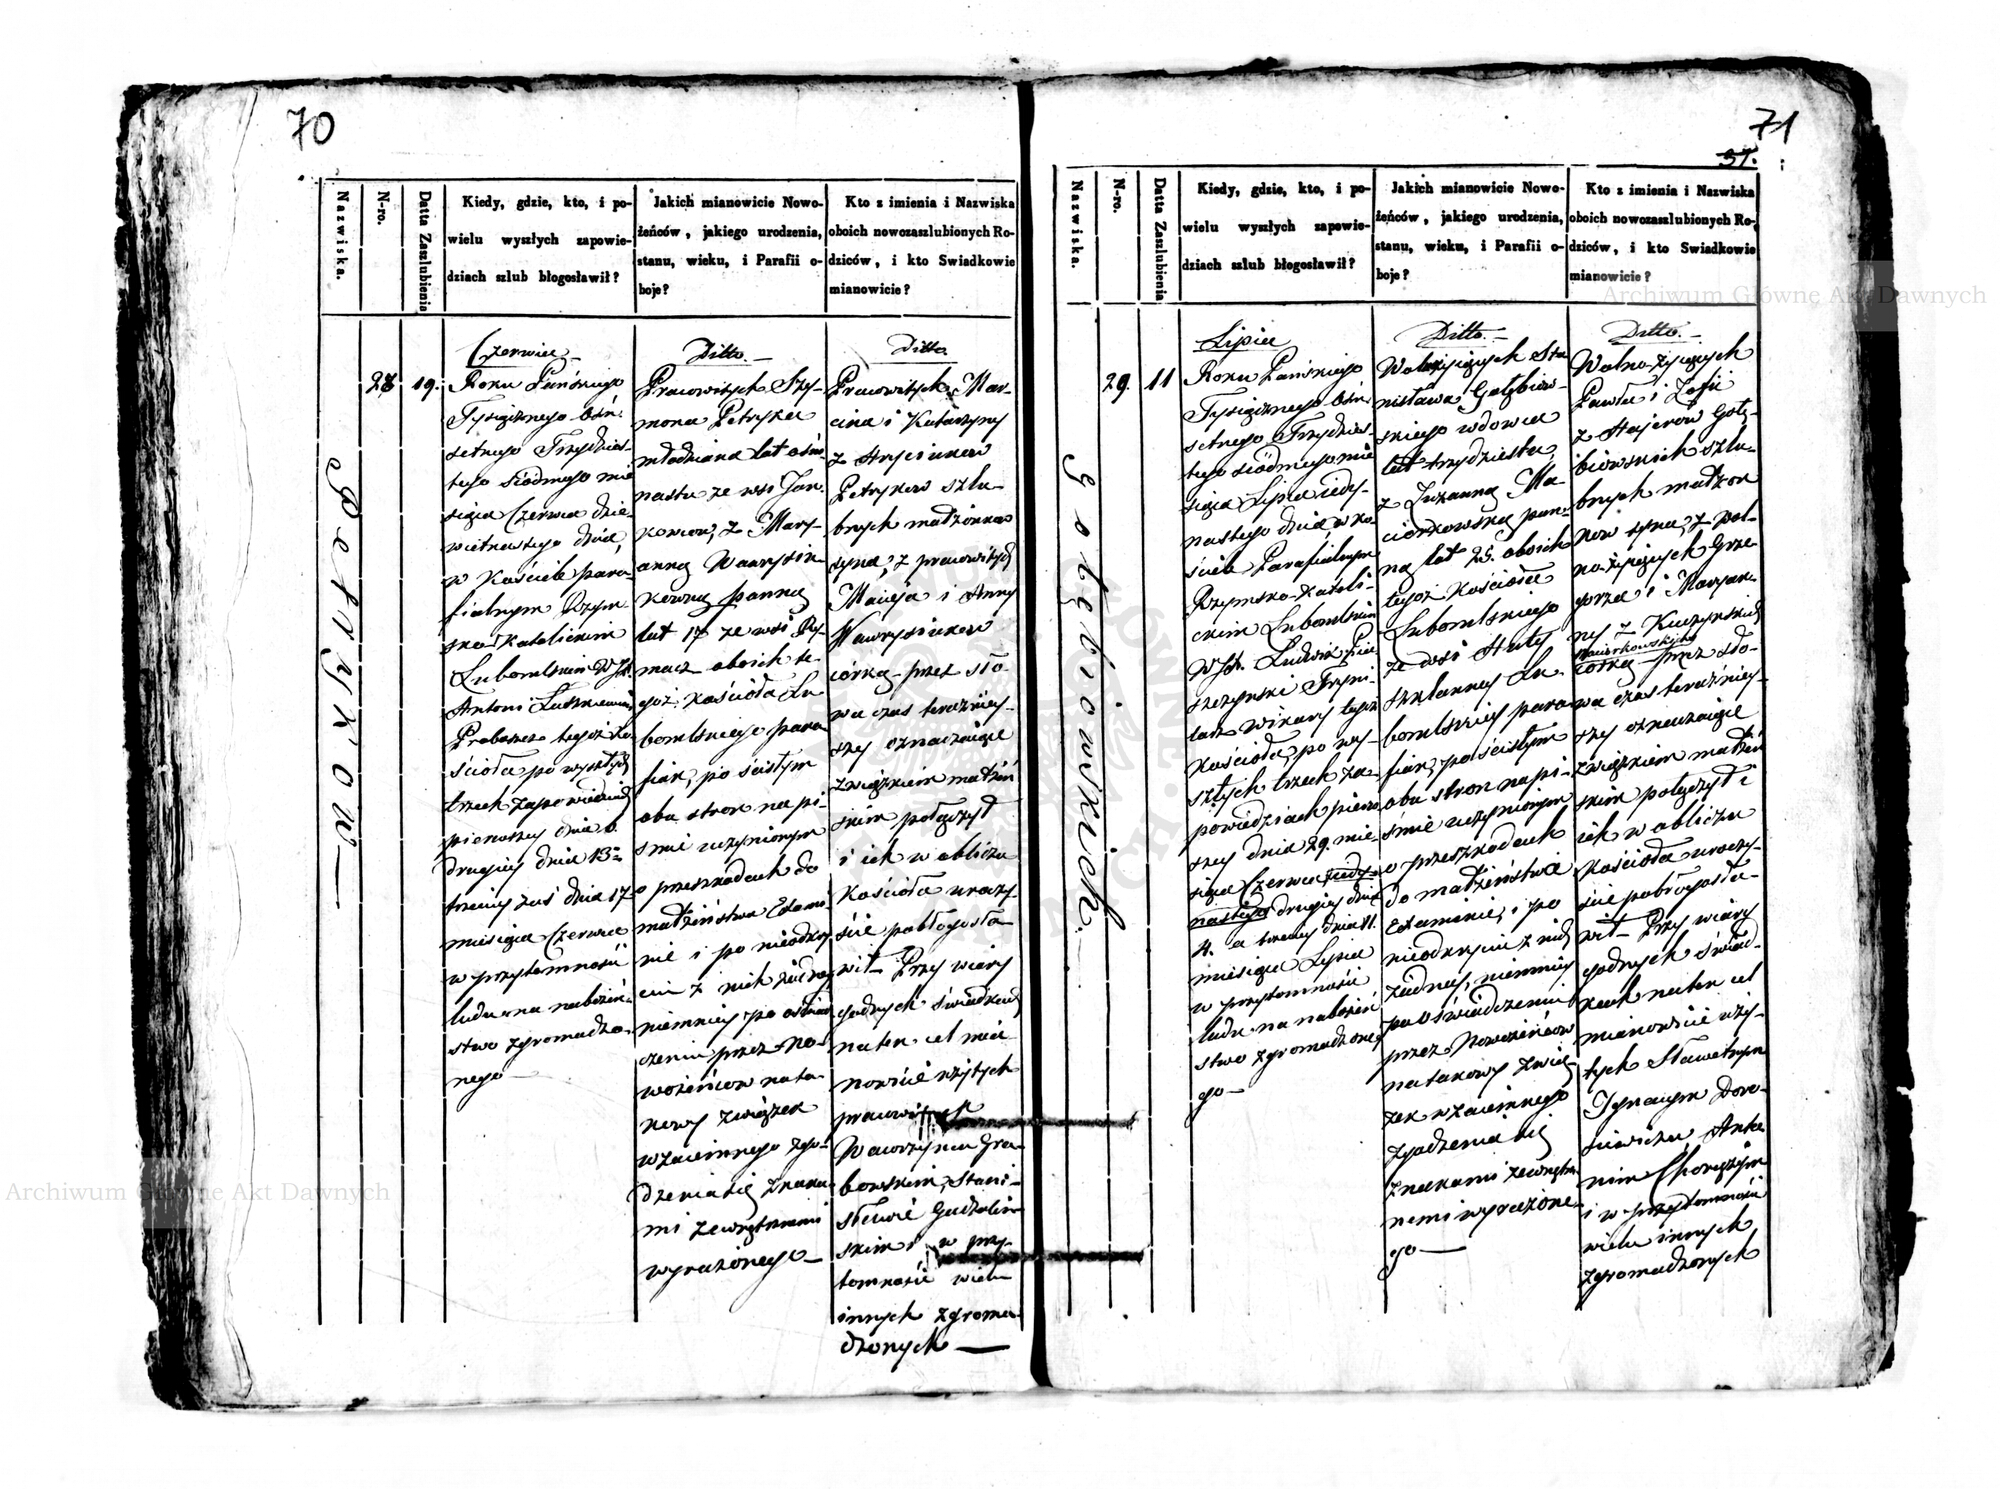 70
Nazwiska.
N-ro.
Datta Zaszlubienia
Kiedy, gdzie, kto, i po-
wielu wyszłych zapowie-
dziach szlub błogosławił?
Jakich mianowicie Nowo-
żeńców, jakiego urodzenia,
stanu, wieku, i Parafii o-
boje?
Kto z imienia i Nazwiska
oboich nowozaszlubionych Ro-
dziców, i kto Swiadkowie
mianowicie?
Petryków
28
19.
Czerwiec
Roku Pańskiego
Tysiącznego Ośm-
setnego Trzydzies-
tego siódmego mie
siąca Czerwca dzie-
wietnastego dnia,
w Kościele para-
fialnym Rzym-
sko Katolickim
Lubomlskim WJX.
Antoni
Proboszcz tegoż Ko-
ścioła po wyszłych
trzech zapowiedziach
pierwszey dnia 6.
drugiey dnia 13
trzeciey zaś dnia 17
miesiąca Czerwca
w przytomności
ludu na nabożeń-
stwo zgromadzo-
nego
Ditto.
Pracowitych Szy-
mona Petryka
młodziana lat ośm
nastu ze wsi Jan-
kowiow, z Mary-
anną Wawrysiu-
kówną panną
lat 17 ze wsi Ry-
macz oboich te-
goż Kościoła Lu
bomlskiego para
fian, po ścisłym
obu stron na pi-
śmie uczynionym
o przeszkodach do
małżeństwa Exami-
nie i po nieodkry
ciu z nich żadney
niemniey po oświad
czeniu przez No-
wożeńcow na ta-
kowy związek
wzaiemnego zga-
dzenia się znaka-
mi zewnętrznemi
wyrażonego
Ditto.
Pracowitych Mar-
cina i Katarzyny
z Hryciukow
Petrykow szlu-
bnych małżonkow
syna, z pracowitych
Macieja i Anny
Wawrysiukow
córką przez sło-
wa czas teraźniey-
szy oznaczaiące
związkiem małżeń
skim połączył
i ich w obliczu
Kościoła uroczy-
ście pobłogosła-
wił Przy wiary
godnych świadkach
na ten cel mia-
nowicie użytych
pracowitych
Wawrzyncu Gra-
bowskim, Stani-
sławie
skim i w przy-
tomności wielu
innych zgroma-
dzonych
71
37.
Nazwiska.
N-ro.
Datta Zaszlubienia
Kiedy, gdzie, kto, i po-
wielu wyszłych zapowie-
dziach szlub błogosławił?
Jakich mianowicie Nowo-
żeńców, jakiego urodzenia,
stanu, wieku, i Parafii o-
boje?
Kto z imienia i Nazwiska
oboich nowozaszlubionych Ro-
dziców, i kto Swiadkowie
mianowicie?
Gołębiowskich
29.
11
Lipiec
Roku Pańskiego
Tysiącznego Ośm-
setnego Trzydzies-
tego siódmego mie
siąca Lipca iedy-
nastego dnia, w ko-
ściele Parafialnym
Rzymsko-Katoli-
ckim Lubomlskim
WJX. Ludwik
Tryni-
tarz Wikary tegoż
Kościoła, po wy-
szłych trzech za-
powiedziach pierw
szey dnia 29. mie-
siąca Czerwca iedy-
nastego drugiey dnia
4. a trzeciey dnia 11.
miesiąca Lipca
w przytomności
ludu na nabożeń
stwo zgromadzone
go
Ditto.
Wolnożyiących Sta
nisława Gołębiow-
skiego wdowca
lat trzydziestu,
z Zuzanną Ma-
ciorkowską pan-
ną lat 25. oboich
tegoż Kościoła
Lubomlskiego
ze wsi Huty
szklanney Lu
bomlskiey para
fian, po ścisłym
obu stron na pi-
śmie uczynionym
o przeszkodach
do małżeństwa
Examinie, i po
nieodkryciu z nich
żadney, niemniey
po oświadczeniu
przez Nowożeńcow
na takowy zwią
zek wzaiemnego
zgadzenia się
znakami zewnętrz
nemi wyrażone-
go
Ditto.
Wolno-żyiących
Pawła i Zofii
z Stajerów Gołę-
biowskich szlu-
bnych małżon
kow syna, z wol-
no-żyiących Grze-
gorza i Maryan-
ny z Kuczyńskich
Maciorkowskich
córką przez sło-
wa czas teraźniey-
szy oznaczaiące
związkiem małżeń
skim połączył i
ich w obliczu
Kościoła uroczy-
ście pobłogosła-
wił Przy wiary
godnych świad-
kach na ten cel
mianowicie uży-
tych Sławetnym
Ignacym Doro-
siewiczu, Anto
nim Chorążym
i w przytomności
wielu innych
zgromadzonych
Archiwum Główne Akt Dawnych
Archiwum Główne Akt Dawnych